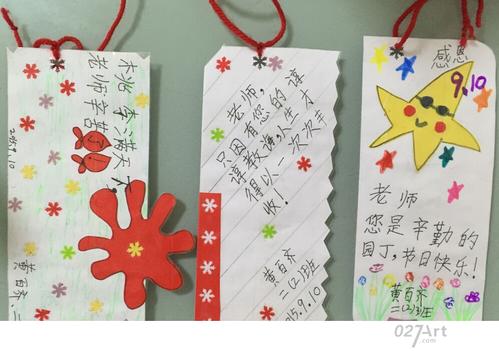 木兆 李满天下
老师辛苦
2015.9.10
黄百齐
老师,
只因有您的谆
谆教诲,人生才
得以一次次丰
收!
黄百齐
二(2)班
2015.9.10
感恩
9.10
老师
您是辛勤的
园丁,节日快乐!
黄百齐
二(2)班
027Art
.com